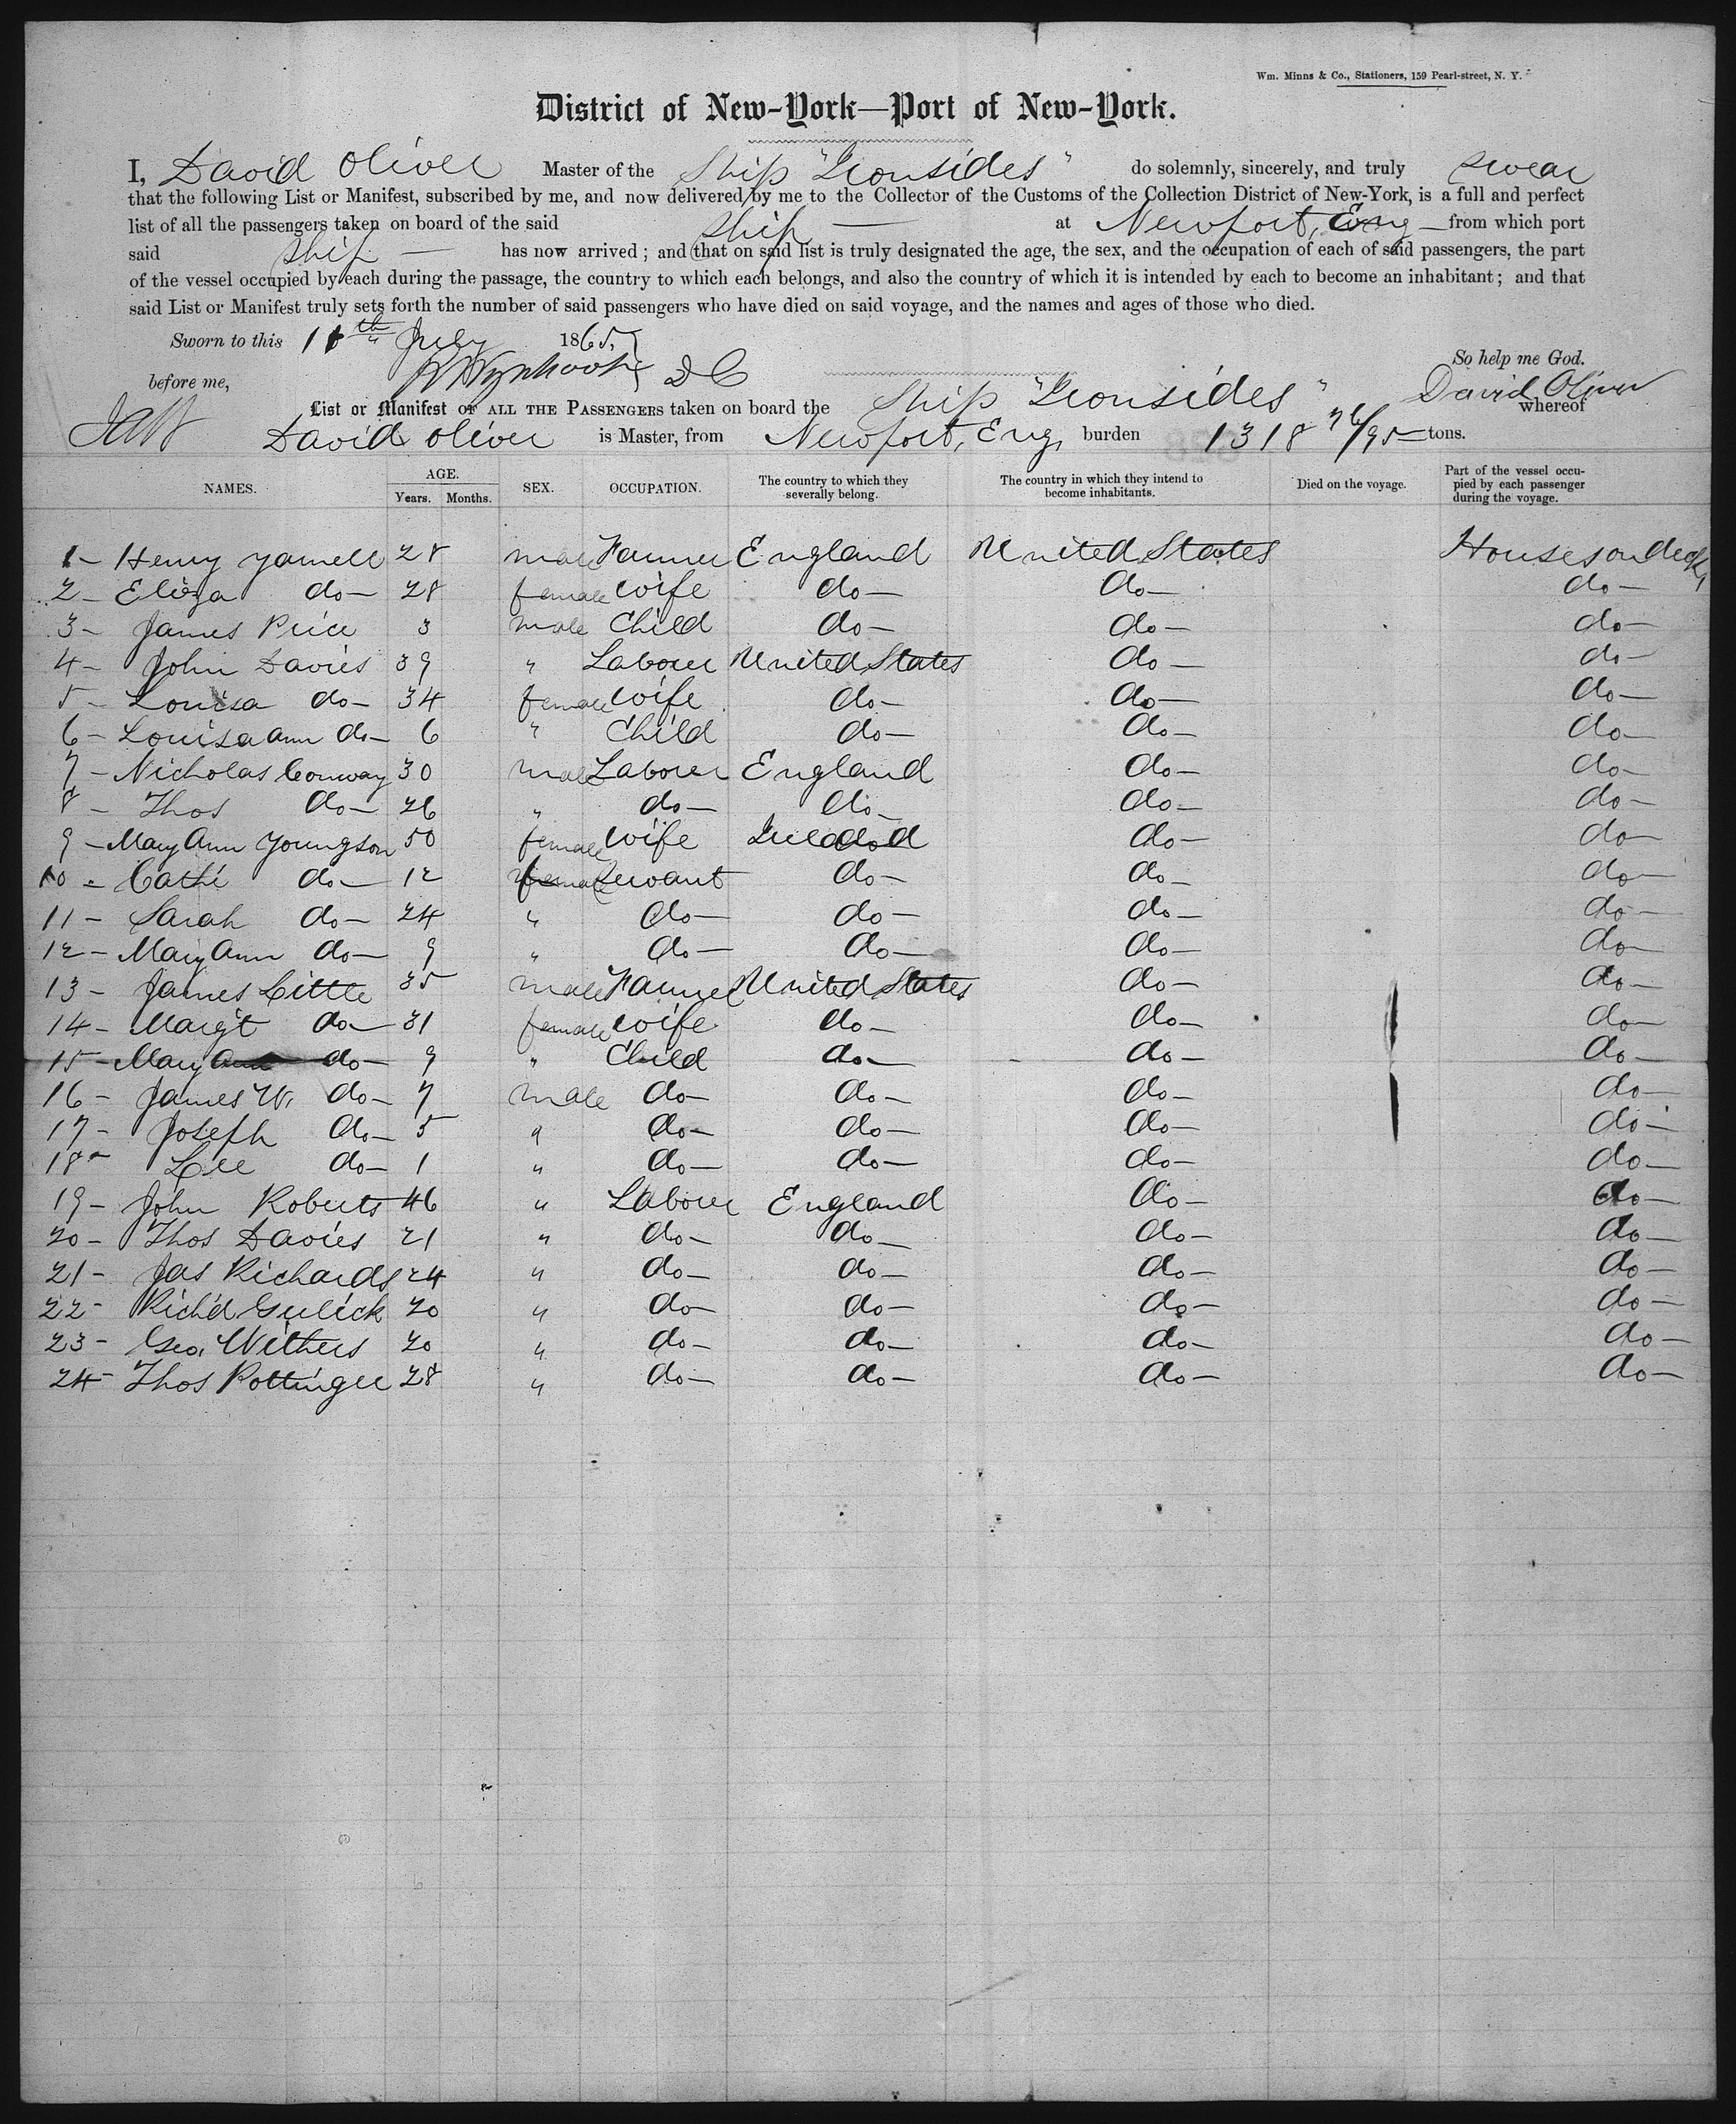 Wm. Minns & Co., Stationers, 159 Pearl-street, N. Y.
District of New-York—Port of New-York.
I, David Oliver Master of the Ship "Ironsides" do solemnly, sincerely, and truly swear
that the following List or Manifest, subscribed by me, and now delivered by me to the Collector of the Customs of the Collection District of New-York, is a full and perfect
list of all the passengers taken on board of the said Ship — at Newport, Eng — from which port
said Ship — has now arrived; and that on said list is truly designated the age, the sex, and the occupation of each of said passengers, the part
of the vessel occupied by each during the passage, the country to which each belongs, and also the country of which it is intended by each to become an inhabitant; and that
said List or Manifest truly sets forth the number of said passengers who have died on said voyage, and the names and ages of those who died.
Sworn to this 11th July 1865,
So help me God.
before me, D C David Oliver
List or Manifest OF ALL THE PASSENGERS taken on board the Ship "Ironsides" whereof
David Oliver is Master, from Newport, Eng, burden 1318 76/95 tons.
NAMES. AGE. Years. Months. SEX. OCCUPATION. The country to which they severally belong. The country in which they intend to become inhabitants. Died on the voyage. Part of the vessel occupied by each passenger during the voyage.
1 – Henry Yarnell 28 male Farmer England United States Houses on deck
2 – Eliza do – 28 female wife do – do – do –
3 – James Price 3 male Child do – do – do –
4 – John Davies 39 " Laborer United States do – do –
5 – Louisa do – 34 female wife do – do – do –
6 – Louisa ann do – 6 " Child do – do – do –
7 – Nicholas Conway 30 male Laborer England do – do –
8 – Thos do – 26 " do – do – do – do –
9 – Mary Ann Youngson 50 female wife do – do –
10 – Cathe do – 12 female Servant do – do – do –
11 – Sarah do – 24 " do – do – do – do –
12 – Mary Ann do – 9 " do – do – do – do –
13 – James Little 35 male Farmer United States do – do –
14 – Margt do – 31 female wife do – do – do –
15 – Mary do – 9 " Child do – do – do –
16 – James W. do – 7 male do – do – do – do –
17 – Joseph do – 5 " do – do – do – do –
18 – Lee do – 1 " do – do – do – do –
19 – John Roberts 46 " Laborer England do – do –
20 – Thos Davies 21 " do – do – do – do –
21 – Jas Richards 24 " do – do – do – do –
22 – Rich'd Gulick 20 " do – do – do – do –
23 – Geo. Withers 20 " do – do – do – do –
24 – Thos Pottinger 28 " do – do – do – do –